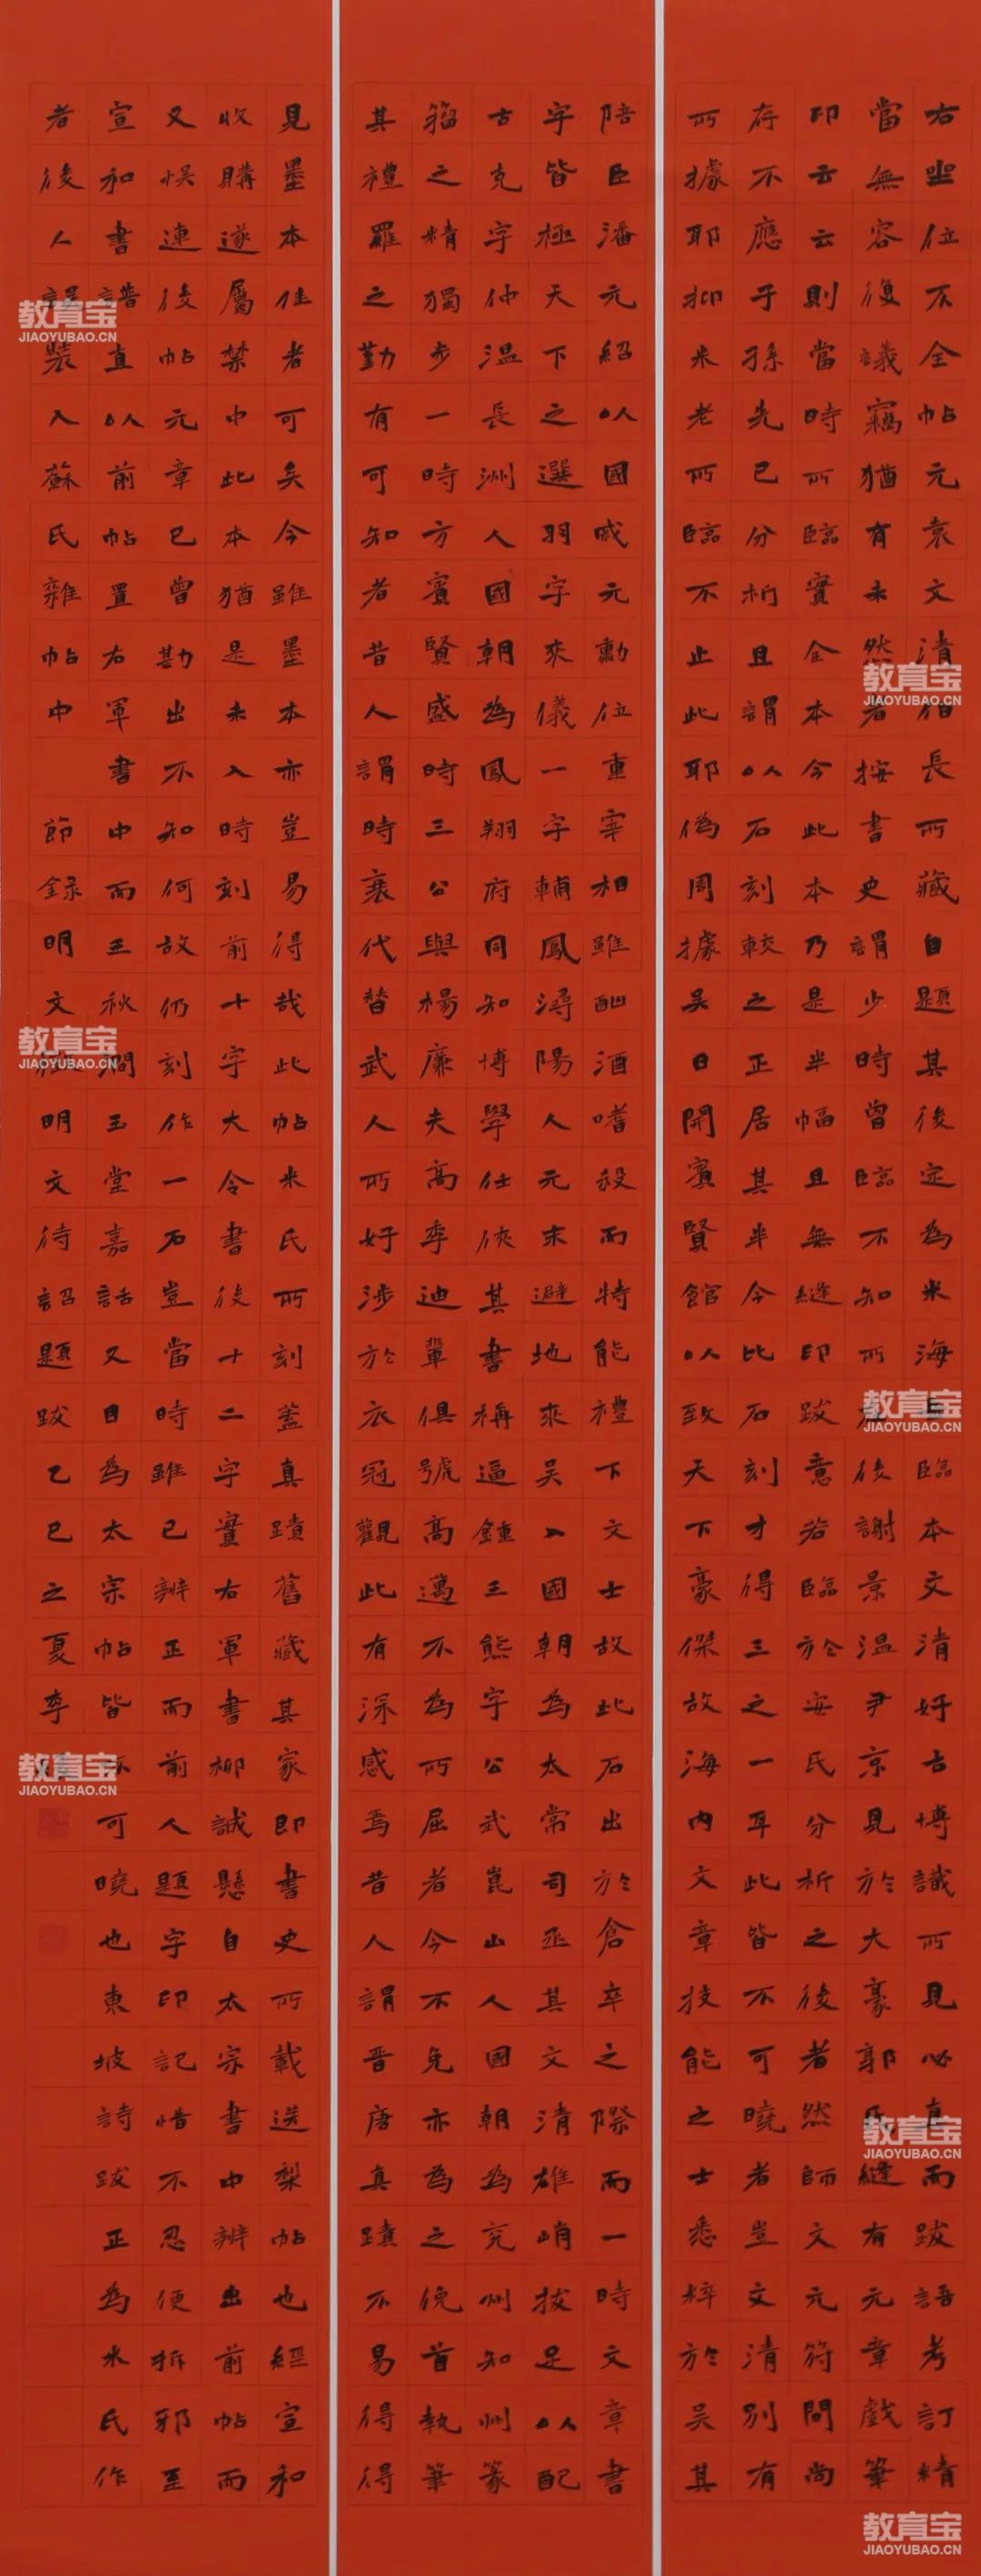 右坐位不全帖元袁文清伯長所藏自題其後定為米海岳臨本文清好古博識所見必真而跋語考訂精
當無容復議竊猶有未然者按書史謂少時曾臨不知所在後謝景温尹京見於大豪郭氏縫有元章戲筆
印云云則當時所臨實全本今此本乃是半幅且無縫印跋意若臨於安氏分析之後者然師文元符間尚
存不應子孫先已分析且謂以石刻較之正居其半今比石刻才得三之一耳此皆不可曉者豈文清別有
所據耶抑米老所臨不止此耶偽周據吳日開賓賢館以致天下豪傑故海內文章技能之士悉粹於吳其
陪臣潘元紹以國戚元勳位重宰相雖酗酒嗜殺而特能禮下文士故此石出於倉卒之際而一時文章書
字皆極天下之選羽字來儀一字輔鳳潯陽人元末避地來吳入國朝為太常司丞其文清雄峭拔足以配
古克字仲温長洲人國朝為鳳翔府同知博學任俠其書稱逼鍾王熊字公武崑山人國朝為兗州知州篆
籀之精獨步一時方賓賢盛時三公與楊廉夫高季迪輩俱號高邁不為所屈者今不免亦為之俛首執筆
其禮羅之勤有可知者昔人謂時衰代替武人所好涉於衣冠觀此有深感焉昔人謂晉唐真蹟不易得得
見墨本佳者可矣今雖墨本亦豈易得哉此帖米氏所刻蓋真蹟舊藏其家即書史所載送梨帖也經宣和
收購遂屬禁中此本猶是未入時刻前十字大令書後十二字實右軍書柳誠懸自太宗書中辨出前帖而
又悞連後帖元章已曾勘出不知何故仍刻作一石豈當時雖已辨正而前人題字印記惜不忍便拆邪至
宣和書譜直以前帖置右軍書中而王秋澗玉堂嘉話又目為太宗帖皆可曉也東坡詩跋正為米氏作
者後人誤裝入蘇氏雜帖中 節錄明文徵明文待詔題跋乙巳之夏李
教育宝
JIAOYUBAO.CN
教育宝
JIAOYUBAO.CN
教育宝
JIAOYUBAO.CN
教育宝
JIAOYUBAO.CN
教育宝
JIAOYUBAO.CN
教育宝
JIAOYUBAO.CN
教育宝
JIAOYUBAO.CN